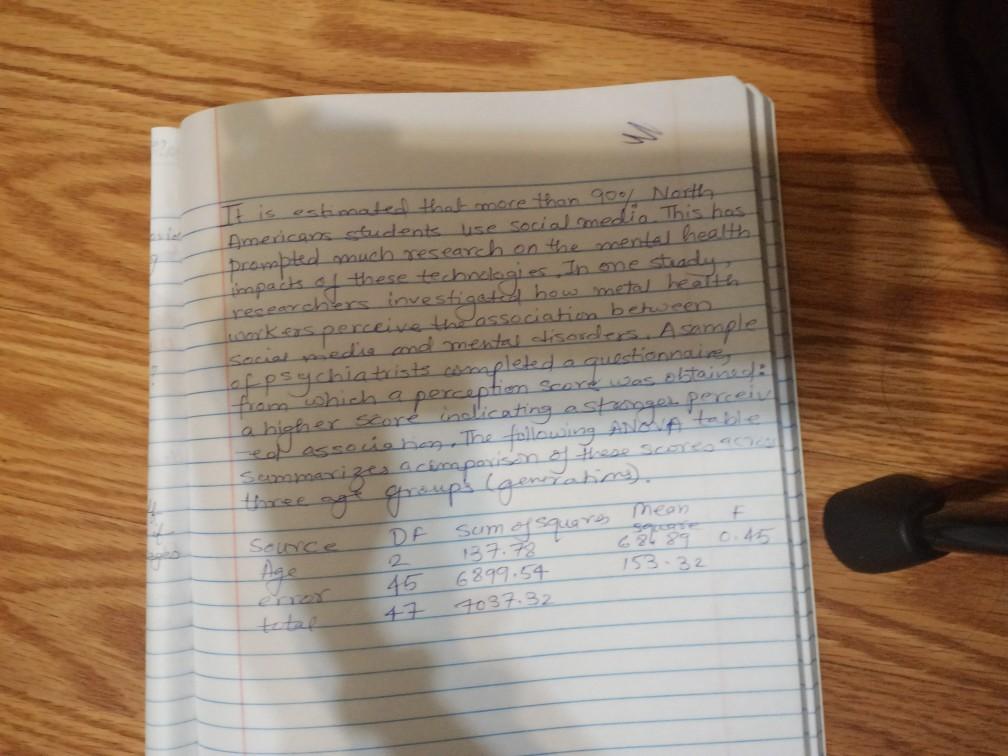 It is estimated that more than 90% North
Americans students use social media. This has
prompted much research on the mental health
impacts of these technologies. In one study,
researchers investigated how metal health
workers perceive the association between
social media and mental disorders. A sample
of psychiatrists completed a questionnaire,
from which a perception score was obtained:
a higher score indicating a stronger perceiv
-ed association. The following ANOVA table
summarizes a comparison of these scores across
three age groups (generations).
Source DF Sum of squares Mean square F
Age 2 137.78 68.89 0.45
error 45 6899.54 153.32
total 47 7037.32